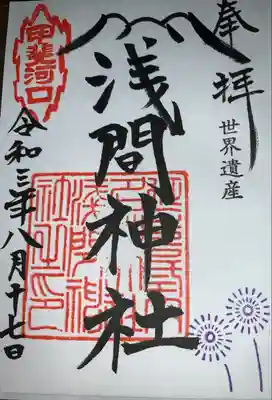 奉拝
世界遺産
浅間神社
甲斐河口
令和三年八月十七日